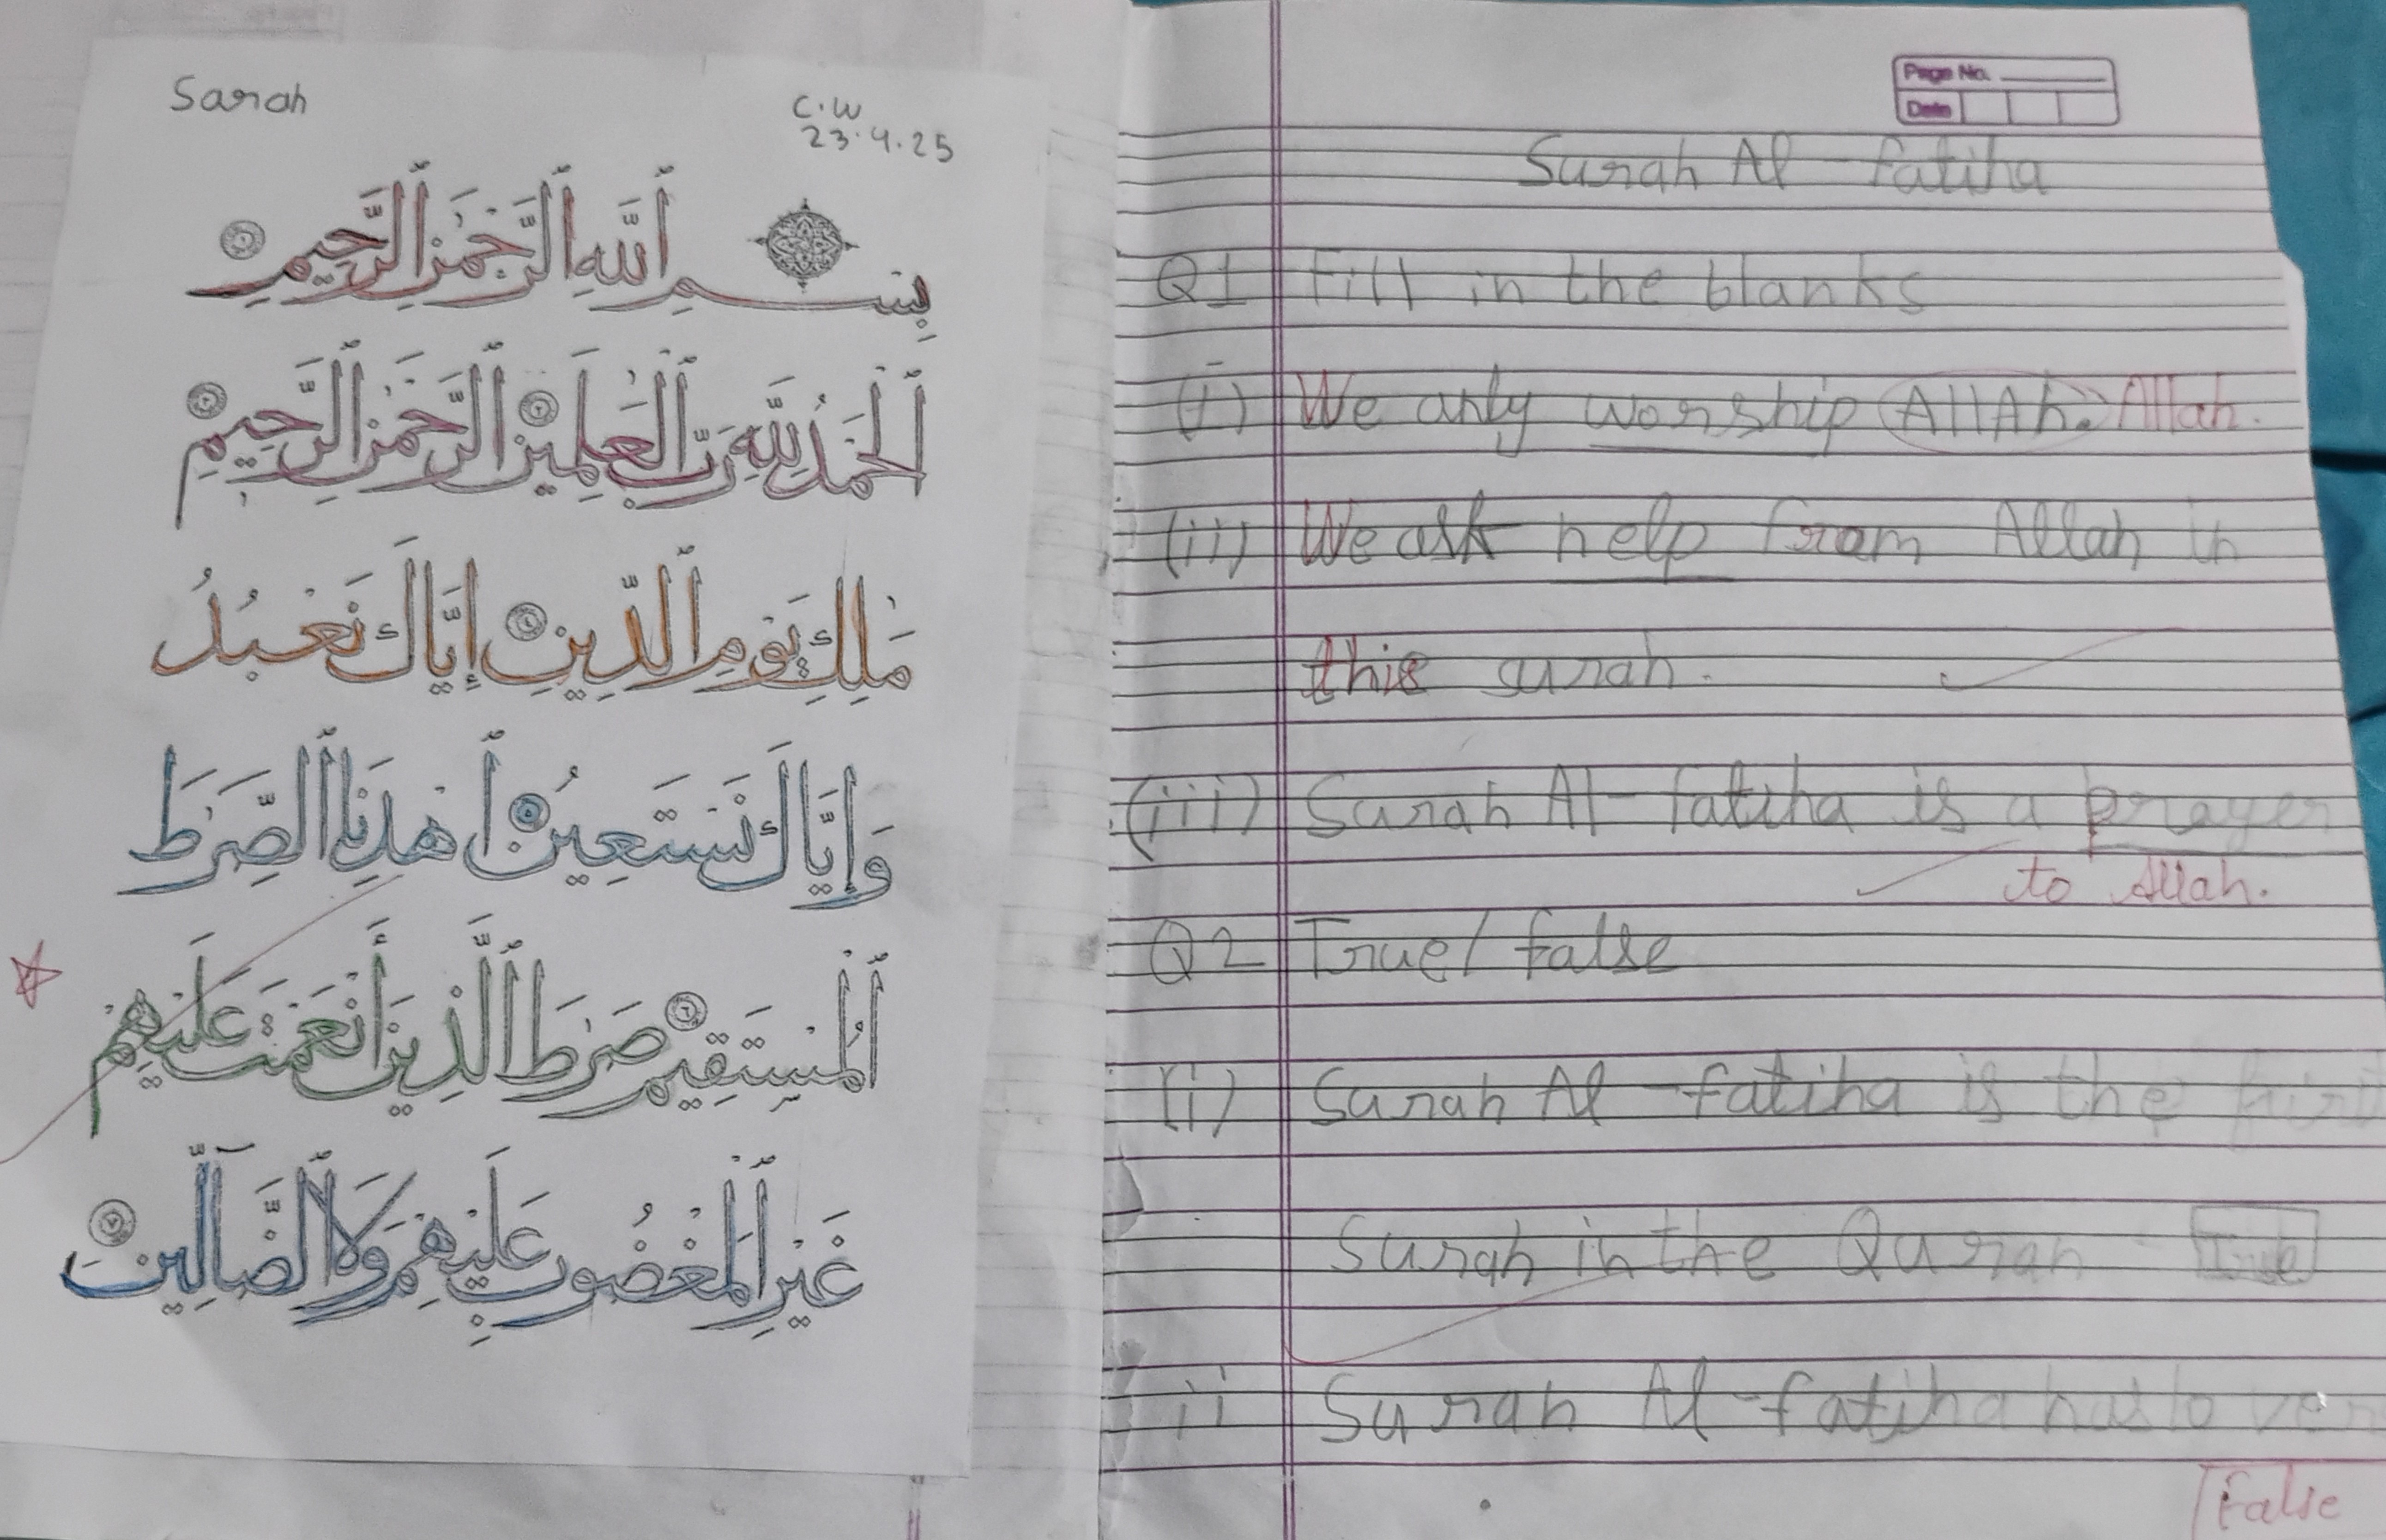 Sarah
C.W
23.4.25
بِسْمِ ٱللَّهِ ٱلرَّحْمَٰنِ ٱلرَّحِيمِ ١
ٱلْحَمْدُ لِلَّهِ رَبِّ ٱلْعَٰلَمِينَ ٢ ٱلرَّحْمَٰنِ ٱلرَّحِيمِ ٣
مَٰلِكِ يَوْمِ ٱلدِّينِ ٤ إِيَّاكَ نَعْبُدُ
وَإِيَّاكَ نَسْتَعِينُ ٥ ٱهْدِنَا ٱلصِّرَٰطَ
ٱلْمُسْتَقِيمَ ٦ صِرَٰطَ ٱلَّذِينَ أَنْعَمْتَ عَلَيْهِمْ
غَيْرِ ٱلْمَغْضُوبِ عَلَيْهِمْ وَلَا ٱلضَّآلِّينَ ٧
Page No.
Date
Surah Al-fatiha
Q1 Fill in the blanks
(i) We only worship AllAh. Allah.
(ii) We ask help from Allah in
this surah.
(iii) Surah Al-fatiha is a prayer
to Allah.
Q2 True/false
(i) Surah Al-fatiha is the first
Surah in the Quran - True
ii Surah Al-fatiha has 10 ver
False